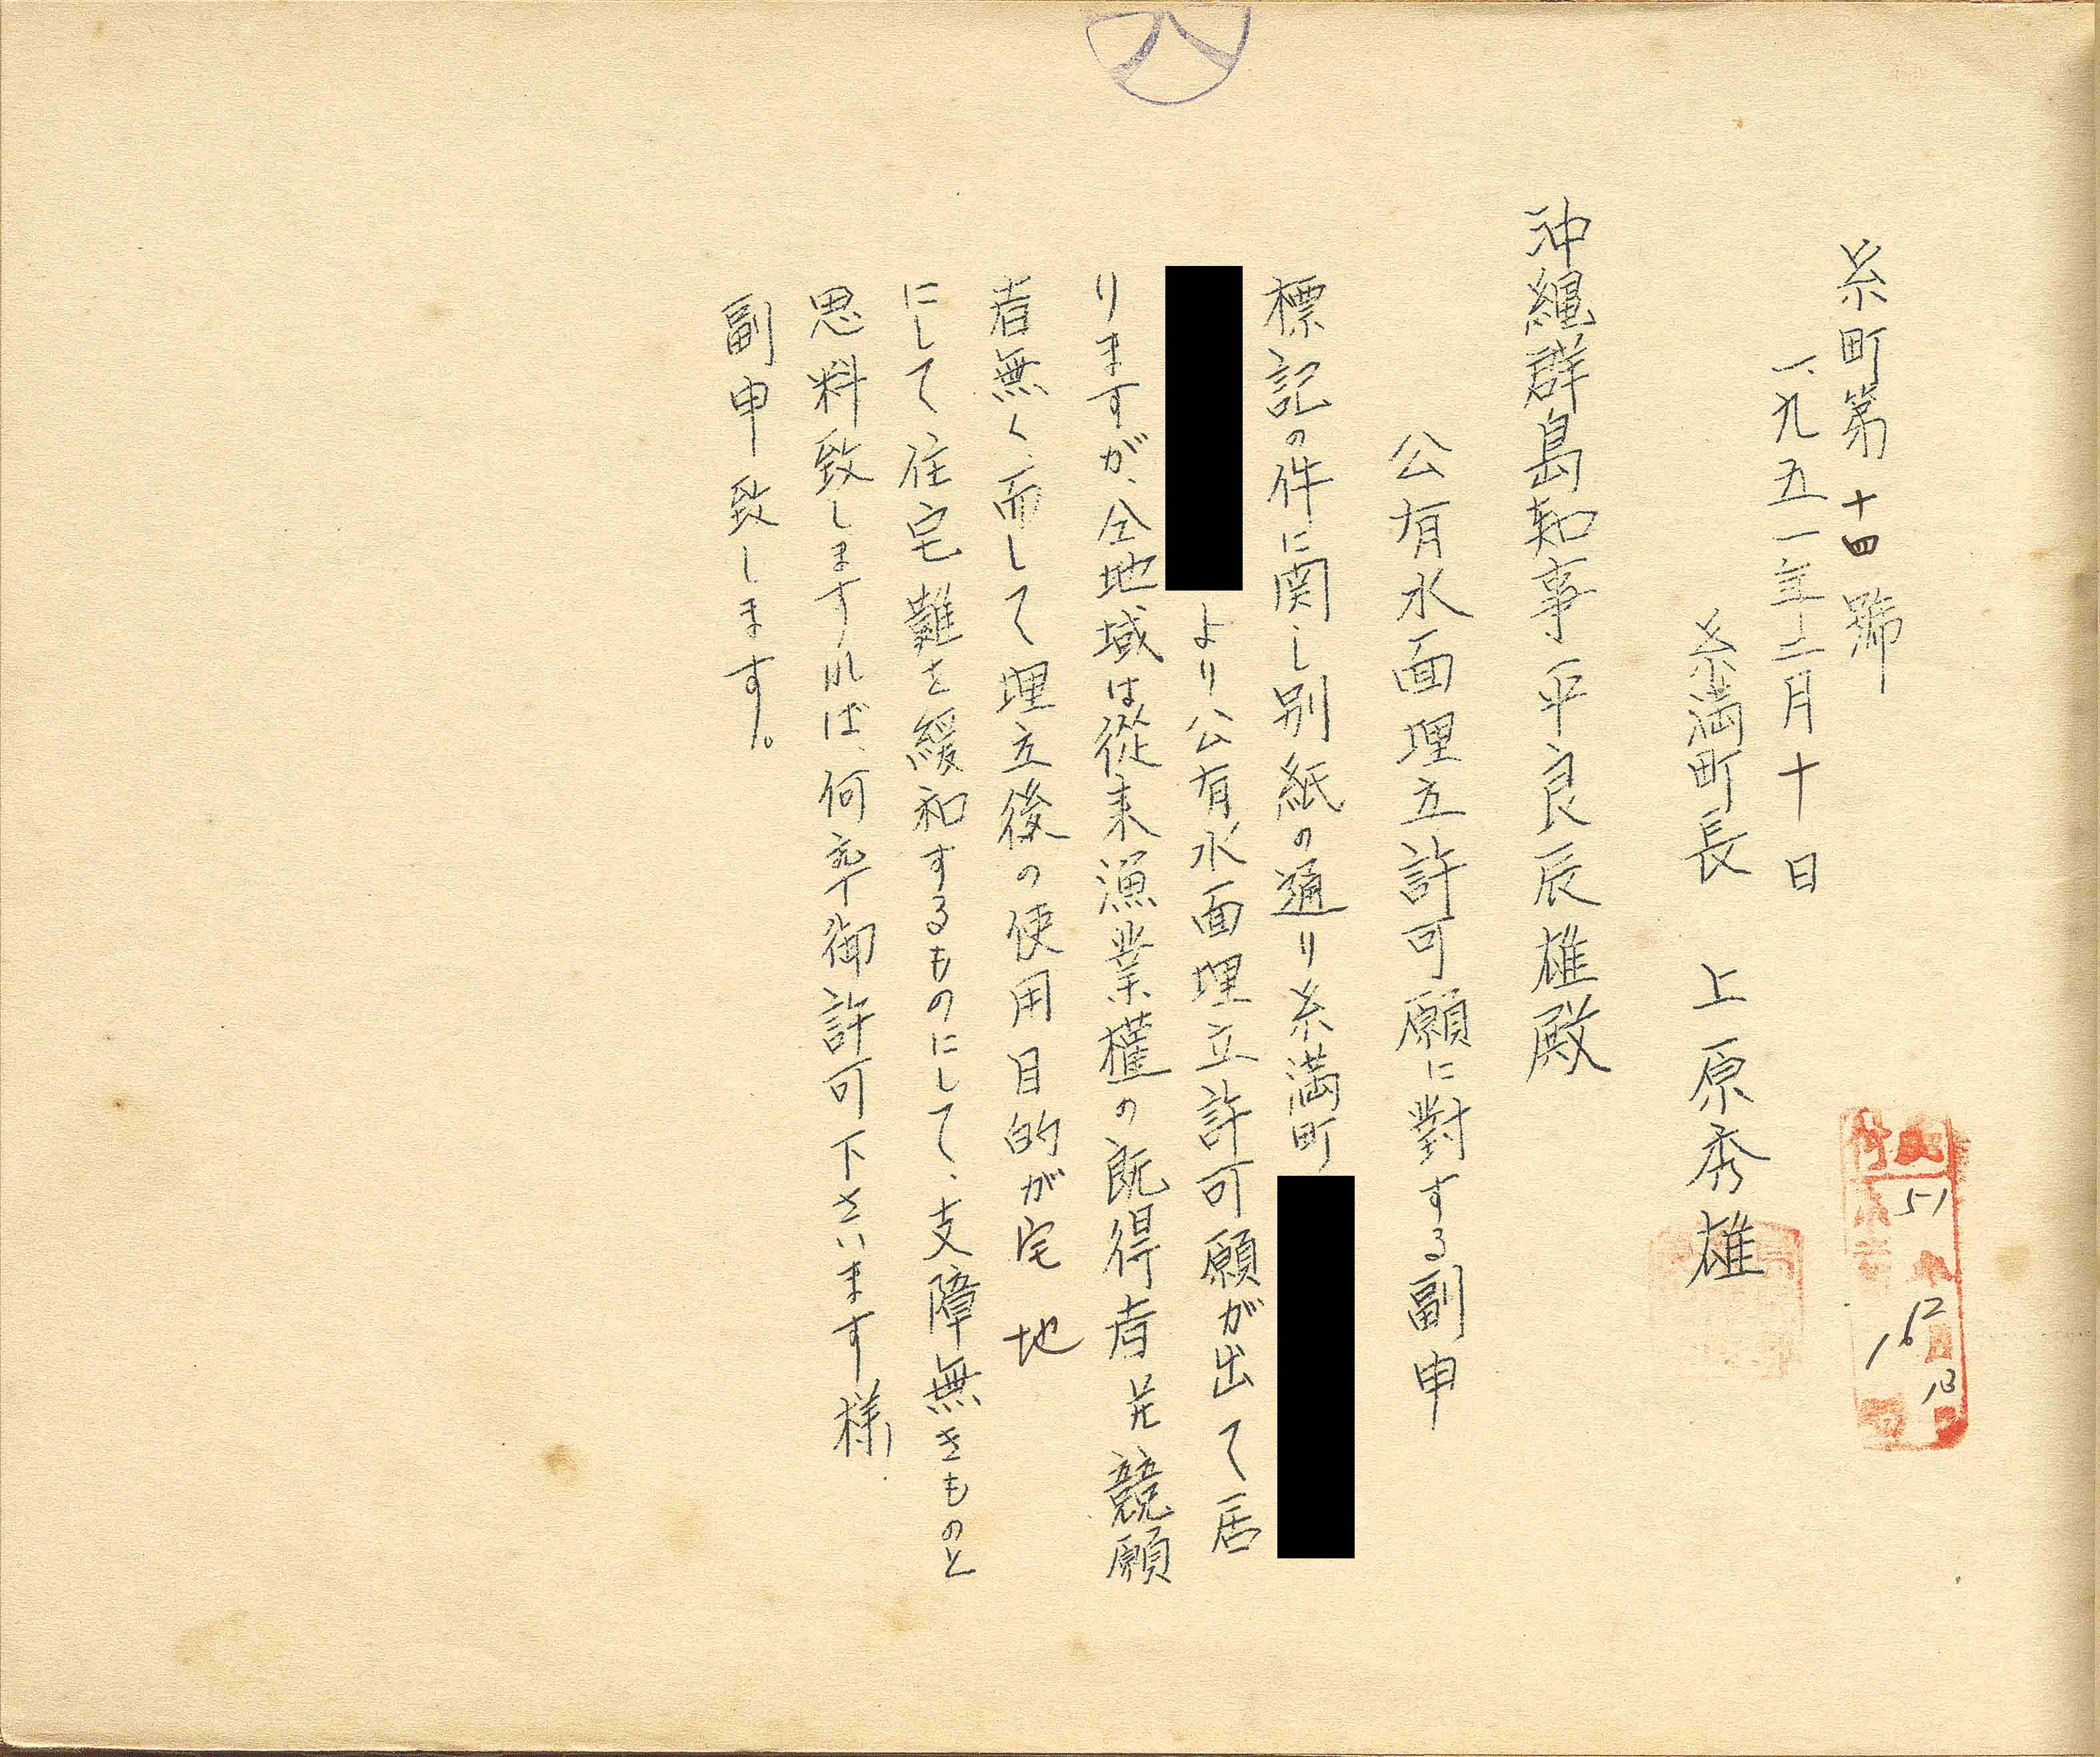 糸町第十四號
一九五一年二月十日
糸満町長 上原秀雄
沖縄群島知事平良辰雄殿
公有水面埋立許可願に對する副申
標記の件に関し別紙の通り糸満町
より公有水面埋立許可願が出て居
りますが、仝地域は從来漁業權の既得者並競願
者無く、而して埋立後の使用目的が宅地
にして住宅難を緩和するものにして、支障無きものと
思料致しますれば、何卆御許可下さいます様
副申致します。
八
51
12
13